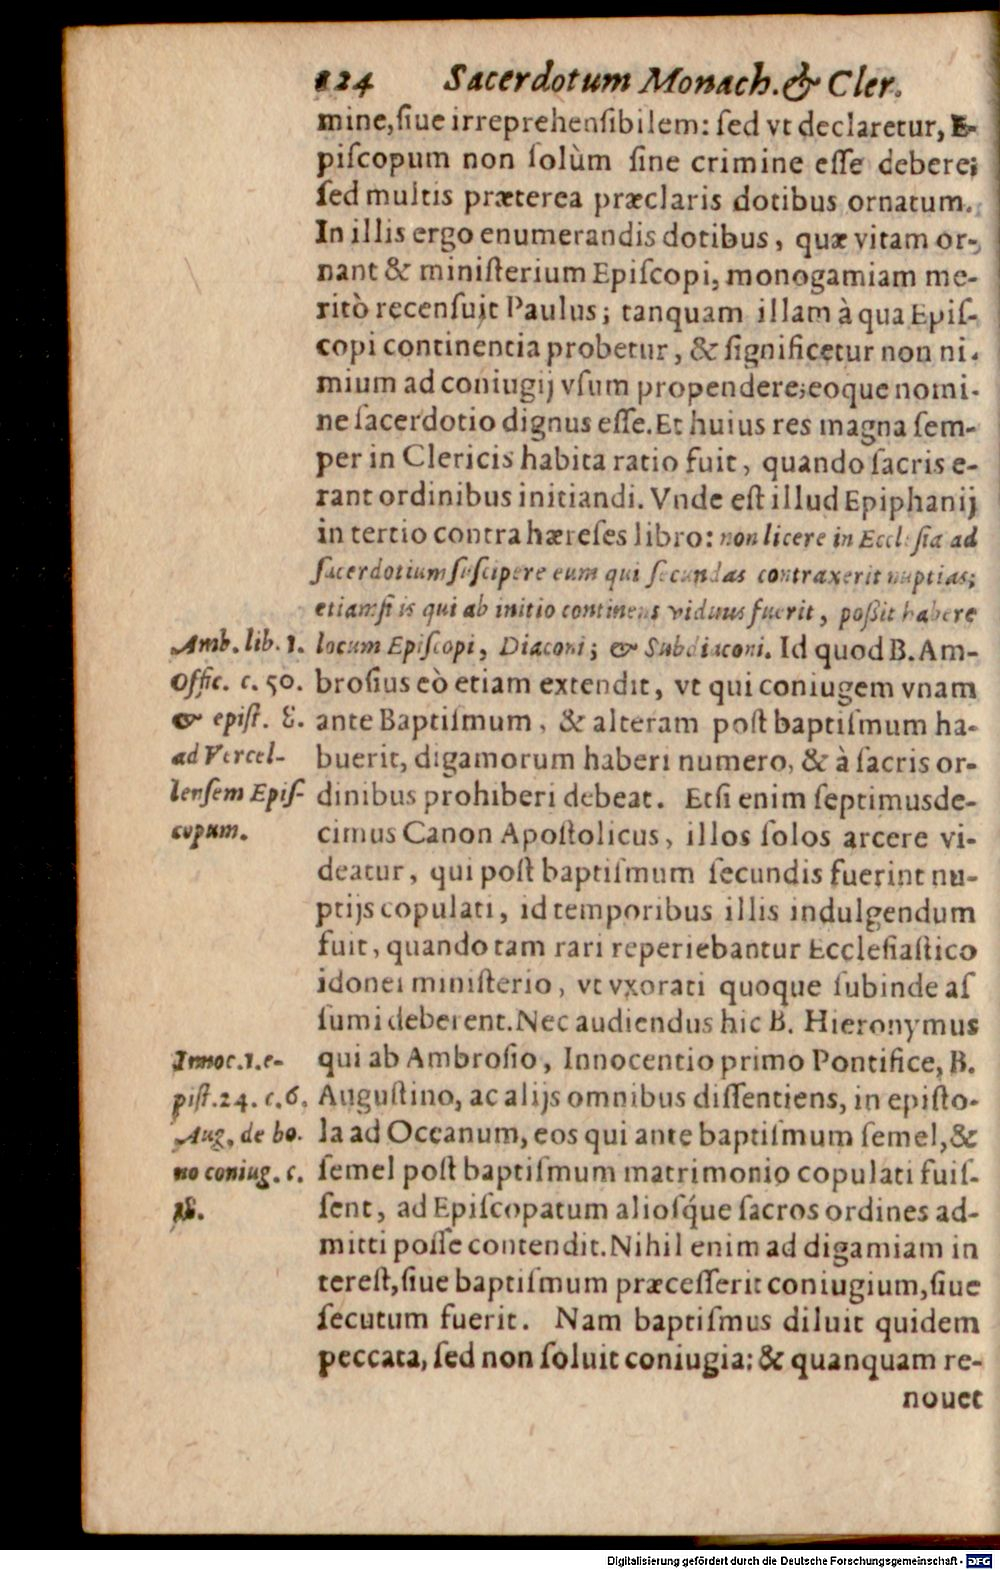 124 Sacerdotum Monach. & Cler.
mine, siue irreprehensibilem: sed vt declaretur, E-
piscopum non solùm sine crimine esse debere;
sed multis præterea præclaris dotibus ornatum.
In illis ergo enumerandis dotibus, quæ vitam or-
nant & ministerium Episcopi, monogamiam me-
ritò recensuit Paulus; tanquam illam à qua Epis-
copi continentia probetur, & significetur non ni-
mium ad coniugij vsum propendere; eoque nomi-
ne sacerdotio dignus esse. Et huius res magna sem-
per in Clericis habita ratio fuit, quando sacris e-
rant ordinibus initiandi. Vnde est illud Epiphanij
in tertio contra hæreses libro: non licere in Ecclesia ad
sacerdotium suscipere eum qui secundas contraxerit nuptias;
etiamsi is qui ab initio continens viduus fuerit, poßit habere
Amb. lib. 1. locum Episcopi, Diaconi; & Subdiaconi. Id quod B. Am-
Offic. c. 50. brosius eò etiam extendit, vt qui coniugem vnam
& epist. 8. ante Baptismum, & alteram post baptismum ha-
ad Vercel- buerit, digamorum haberi numero, & à sacris or-
lensem Epis- dinibus prohiberi debeat. Etsi enim septimusde-
copum. cimus Canon Apostolicus, illos solos arcere vi-
deatur, qui post baptismum secundis fuerint nu-
ptijs copulati, id temporibus illis indulgendum
fuit, quando tam rari reperiebantur Ecclesiastico
idonei ministerio, vt vxorati quoque subinde as
sumi deberent. Nec audiendus hic B. Hieronymus
Innoc. 1. e- qui ab Ambrosio, Innocentio primo Pontifice, B.
pist. 24. c. 6. Augustino, ac alijs omnibus dissentiens, in episto-
Aug. de bo. la ad Oceanum, eos qui ante baptismum semel, &
no coniug. c. semel post baptismum matrimonio copulati fuis-
18. sent, ad Episcopatum aliosq́ue sacros ordines ad-
mitti posse contendit. Nihil enim ad digamiam in
terest, siue baptismum præcesserit coniugium, siue
secutum fuerit. Nam baptismus diluit quidem
peccata, sed non soluit coniugia: & quanquam re-
nouet
Digitalisierung gefördert durch die Deutsche Forschungsgemeinschaft - DFG